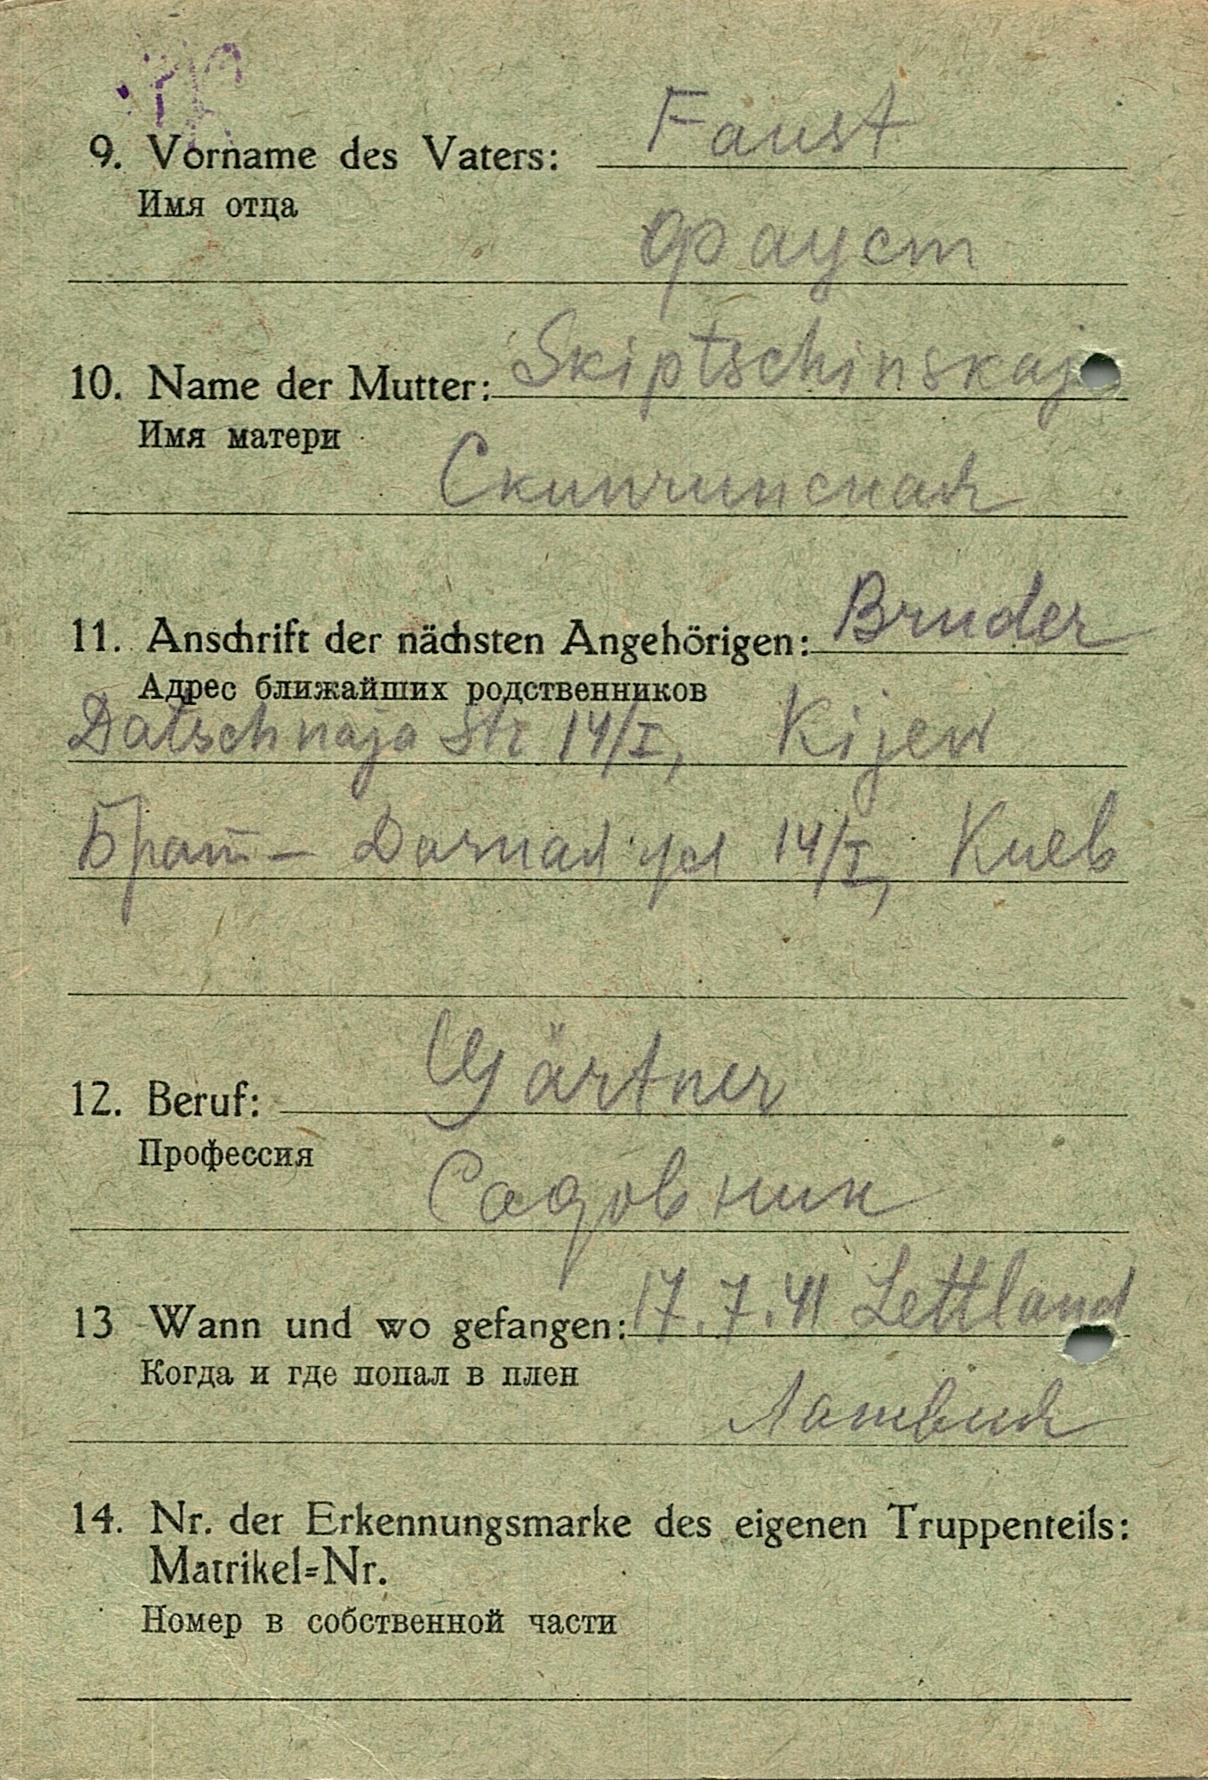 9. Vorname des Vaters: Faust
Имя отца
Фауст
10. Name der Mutter: Skiptschinskaja
Имя матери
Скипчинская
11. Anschrift der nächsten Angehörigen: Bruder
Адрес ближайших родственников
Datschnaja Str 14/I, Kijew
Брат – Дачная ул 14/I, Киев
12. Beruf: Gärtner
Профессия
Садовник
13 Wann und wo gefangen: 17.7.41 Lettland
Когда и где попал в плен
Латвия
14. Nr. der Erkennungsmarke des eigenen Truppenteils:
Matrikel=Nr.
Номер в собственной части